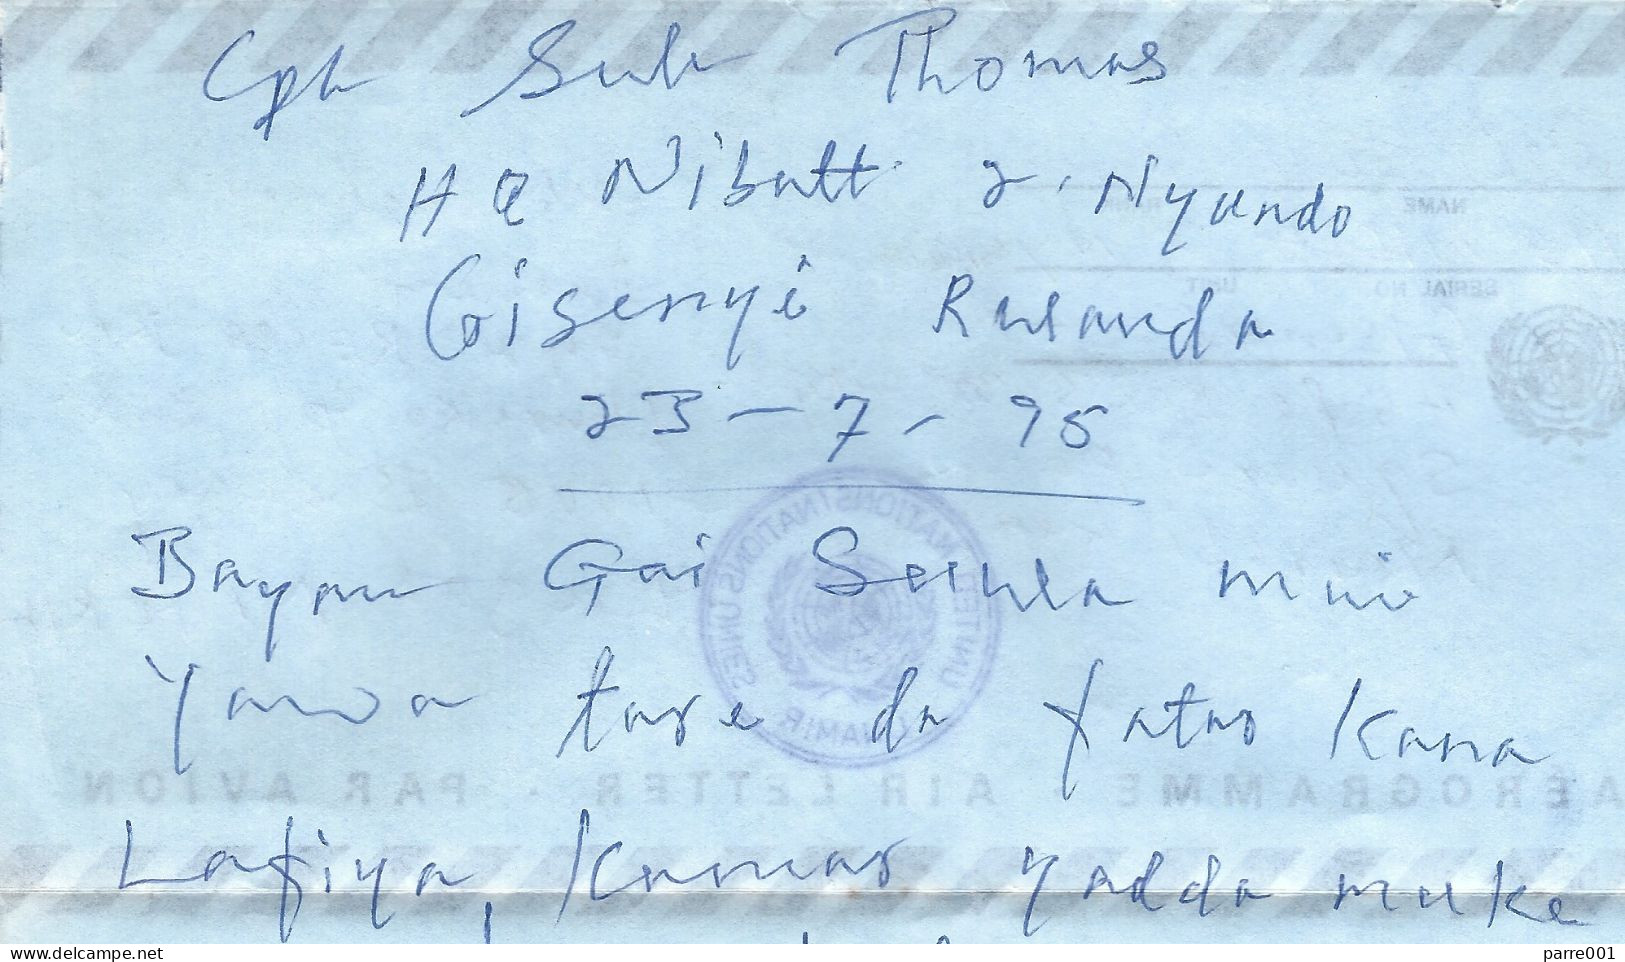 Cpl Sule Thomas
HQ Nibatt 2. Nyundo
NAME
Gisenyi Rwanda
SERIAL NO UNIT
23-7-95
UNITED NATIONS NATIONS UNIES
UNAMIR
Bayan Gai Suwa mai
Yawa tare da fatar Kana
AÉROGRAMME AIR LETTER · PAR AVION
Lafiya, Kamar yadda muke
parre001